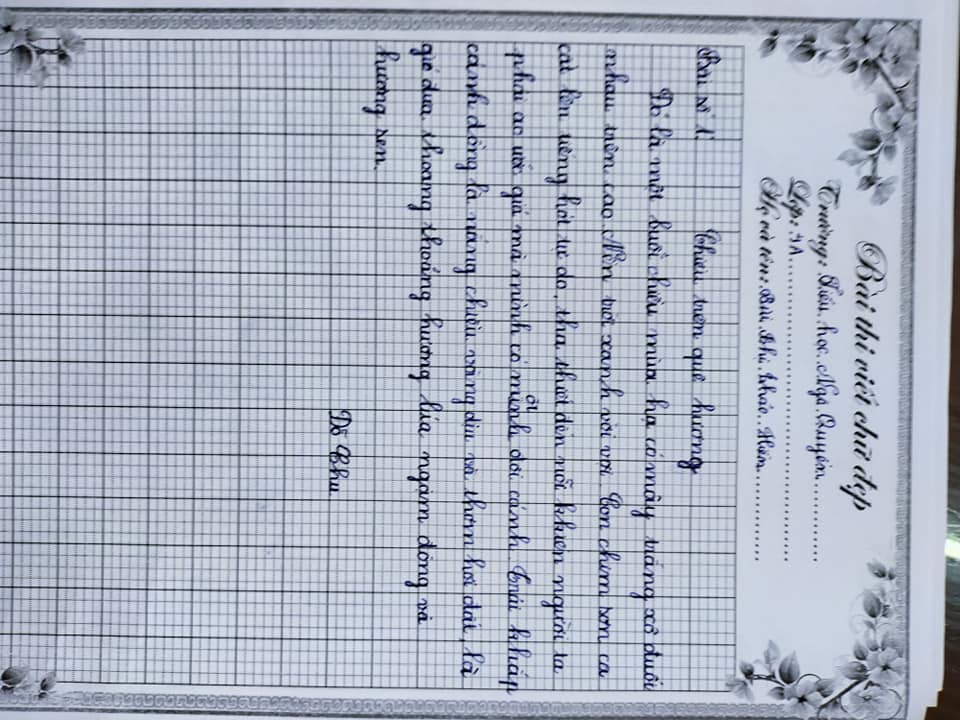 Bài thi viết chữ đẹp
Trường: Tiểu học Ngô Quyền
Lớp: 4A
Họ và tên: Bùi Thị Thảo Hiền
Bài số 1:
Chiều trên quê hương
Đó là một buổi chiều mùa hạ có mây trắng xô đuổi
nhau trên cao. Nền trời xanh vời vợi. Con chim sơn ca
cất lên tiếng hót tự do, tha thiết đến nỗi khiến người ta
phải ao ước giá mà mình có mình đôi cánh. Trải khắp
ơi
cánh đồng là nắng chiều vàng dịu và thơm hơi đất, là
gió đưa thoang thoảng hương lúa ngậm đòng và
hương sen.
Đỗ Chu